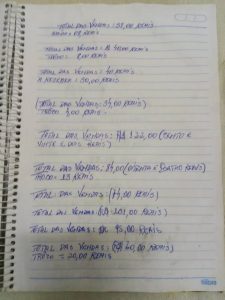 TOTAL DAS VENDAS: 58,00 REAIS
TOTAL DAS VENDAS: R$ 40,00 REAIS
TROCO: 8,00 REAIS
TOTAL DAS VENDAS: 40 REAIS
A RECEBER: 50,00 REAIS
(TOTAL DAS VENDAS: 54,00 REAIS)
TROCO: 9,00 REAIS
TOTAL DAS VENDAS: R$ 122,00 (CENTO E
VINTE E DOIS REAIS)
TOTAL DAS VENDAS: 84,00 (OITENTA E QUATRO REAIS)
TROCO: 13 REAIS
TOTAL DAS VENDAS: (74,00 REAIS)
TOTAL DAS VENDAS: (R$ 101,00 REAIS)
TOTAL DAS VENDAS: R$ 95,00 REAIS
TOTAL DAS VENDAS: (R$ 60,00 REAIS)
TROCO = 20,00 REAIS